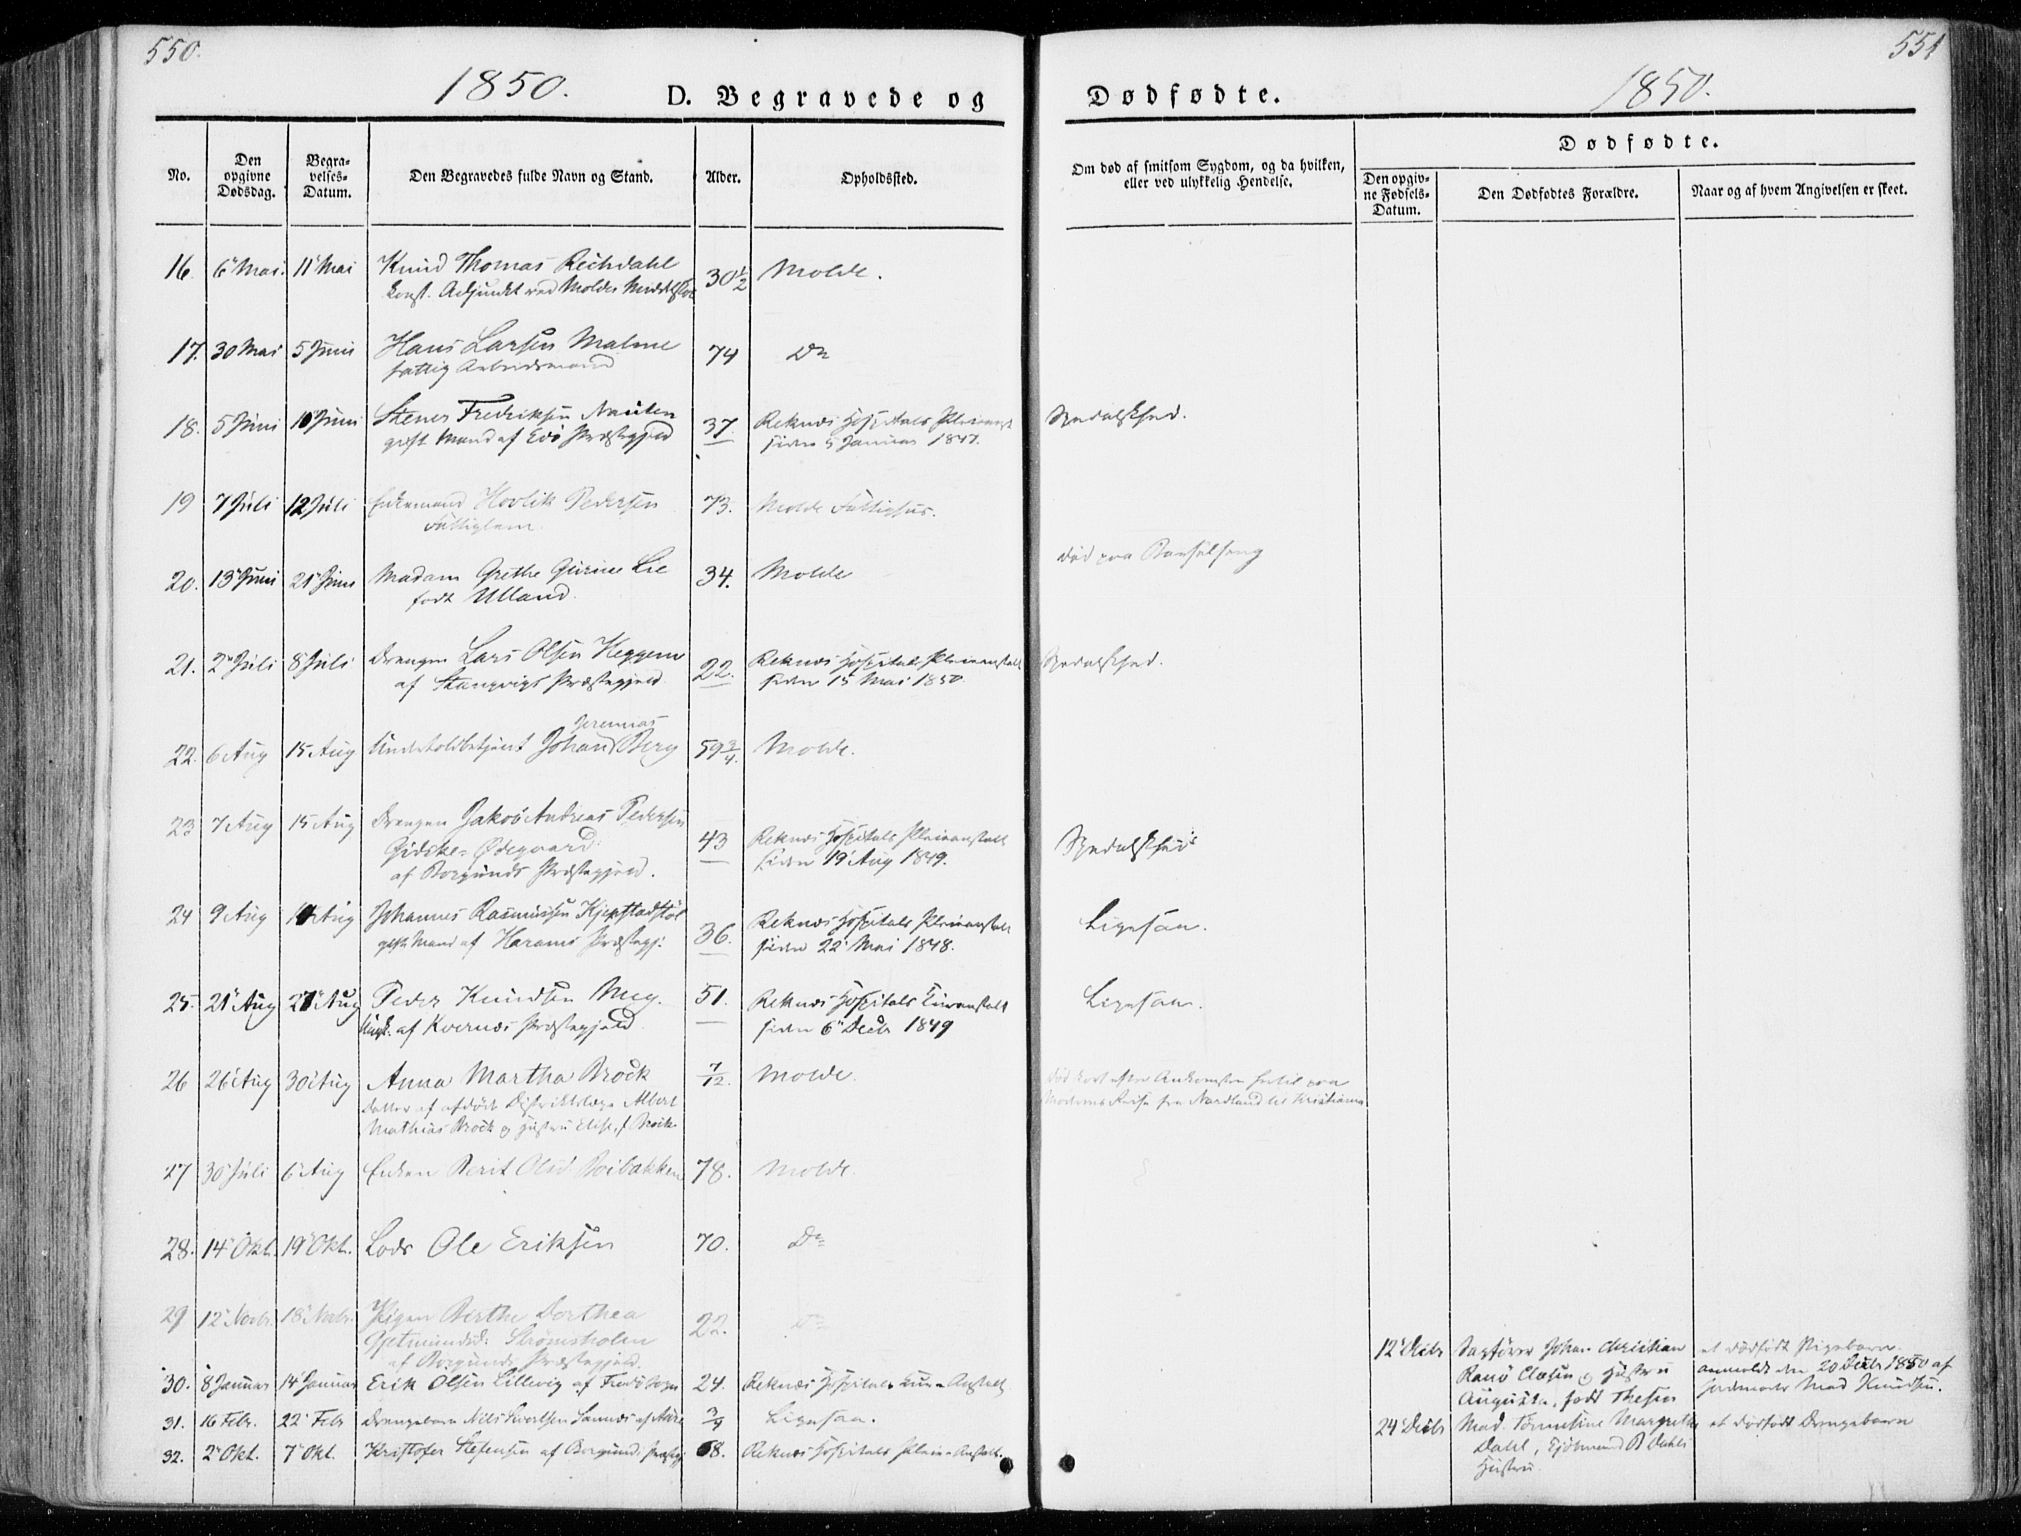 550.
551
1850.
D. Begravede og
Dødfødte.
1850.
No.
Den opgivne Dødsdag.
Begravelses-Datum.
Den Begravedes fulde Navn og Stand.
Alder.
Opholdssted.
Om død af smitsom Sygdom, og da hvilken, eller ved ulykkelig Hendelse.
Dødfødte.
Den opgivne Fødsels-Datum.
Den Dødfødtes Forældre.
Naar og af hvem Angivelsen er skeet.
16. 6 Mai. 11 Mai Knud Thomas 30½ Molde.
konst. Adjunkt ved Molde
17. 30 Mai 5 Juni Hans Larsen Malme 74 Do
fattig Arbeidsmand
18. 5 Juni 10 Juni Fredriksen 37 Reknæs Hospitals Pleieanst Spedalskhed.
gift Mand af Edø Præstegjeld siden 5 Januar 1847.
19 7 Juli 12 Juli Enkemand Pedersen 73. Molde Fattighus.
Fattiglem.
20. 13 Juni 21 Juni Madam Grethe Gurine Lie 34. Molde død paa Barselseng
født Ulland.
21. 2 Juli 8 Juli Drengen Lars Olsen Heggem 22. Reknæs Hospitals Pleieanstalt Spedalskhed.
af Stangvigs Præstegjeld. siden 15 Mai 1850.
Jeremias
22. 6 Aug 15 Aug Undertoldbetjent Johan Berg 59¾. Molde.
23 7 Aug 15 Aug Drengen Jakob Andreas Pedersen
Gidske-Ødegaard 43 Reknæs Hospitals Pleieanstalt Spedalskhed
af Borgunds Præstegjeld. siden 19 Aug 1849.
24 9 Aug Aug Johannes Rasmussen 36. Reknæs Hospitals Pleieanstalt Ligesaa.
gift Mand af Harams Præstegj. siden 22 Mai 1848.
25. 21 Aug 27 Aug Peder Knudsen 51. Reknæs Hospitals Kuranstalt Ligesaa.
Ungk. af Kvernæs Præstegjeld. siden 6 Decbr 1849
26 26 Aug 30 Aug Anna Martha Brock 7/12. Molde. død kort efter Ankomsten hertil paa
Datter af afdøde Distriktslæge Albert Moderens Reise fra Nordland til Kristiania
Mathias Brock og Hustru Elise f. Brock
27 30 Juli 6 Aug Enken Berit Olsd 78. Molde.
28. 14 Okt. 19 Okt. Lods Ole Eriksen 70. Do
29 12 Novbr. 18 Novbr. Pigen Birthe Dorthea 22. Do
Gjetmundsd. Strømsholm
af Borgunds Præstegjeld.
30. 8 Januar 14 Januar Erik Olsen Lillevig af Sogn 24. Reknæs Hospitals Kur-Anstalt
31. 16 Febr. 22 Febr Drengebarn Nils af 3/4 Ligesaa.
32. 2 Okt. 7 Okt. Kristofer af Borgunds Præstegj. 68. Reknæs Hospitals Pleie-Anstalt.
12 Decbr Sagfører Johan Christian et dødfødt Pigebarn.
og Hustru anmeldt den 20 Decbr 1850 af
Augusta, født Jordemoder Mad Knudsen.
24 Decbr Mad. Margrethe et dødfødt Drengebarn
Dahl, Dahls
Hustru.